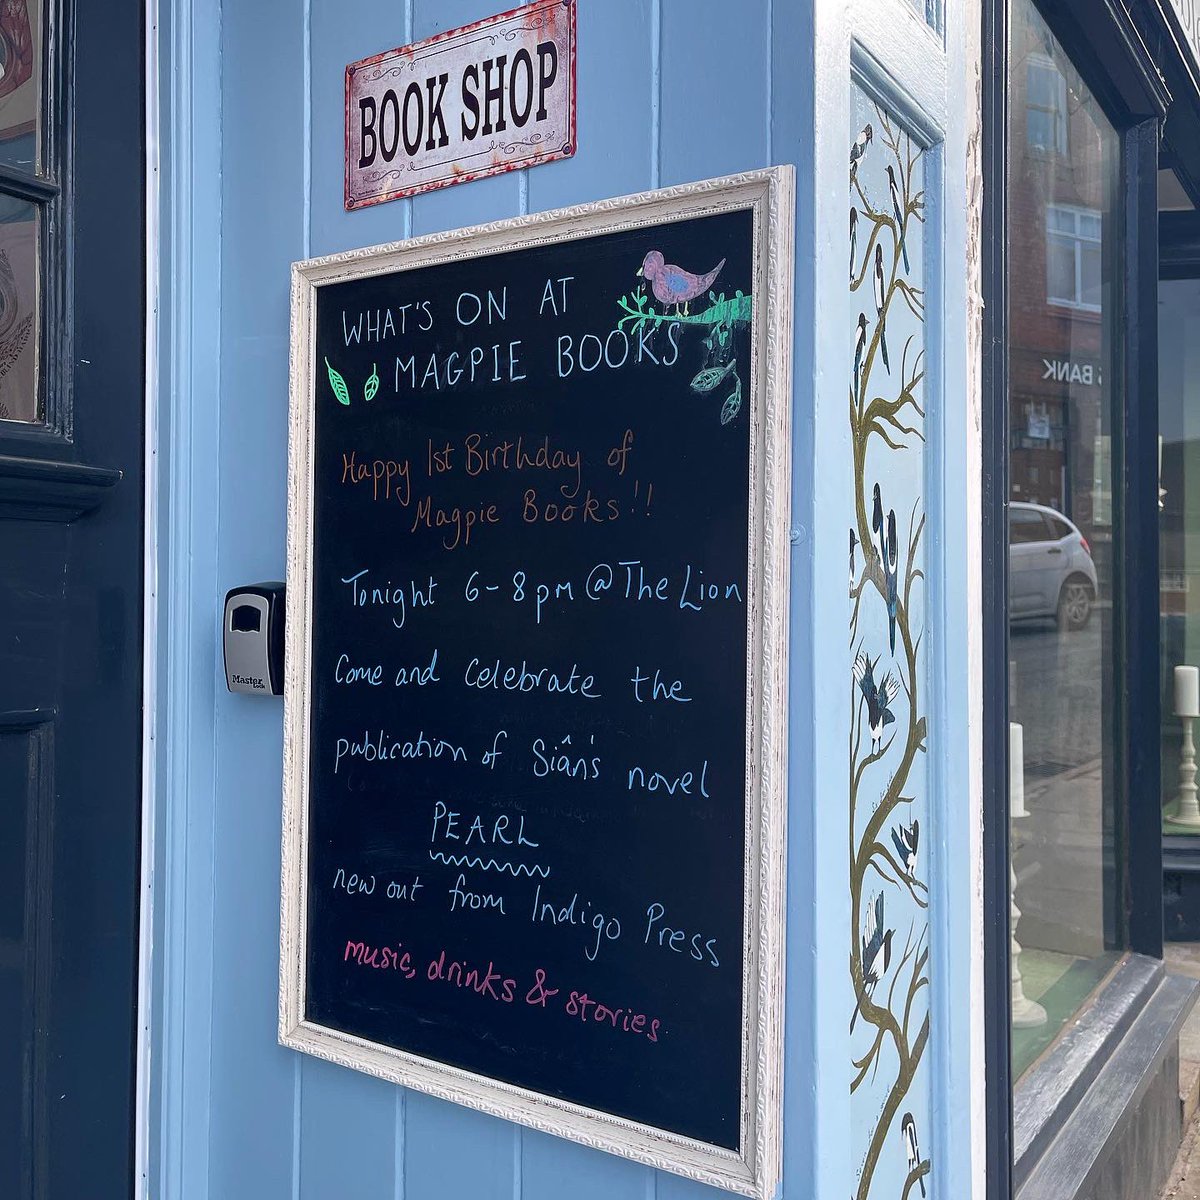 BOOK SHOP
WHAT'S ON AT
MAGPIE BOOKS
Happy 1st Birthday of
Magpie Books!!
Tonight 6-8pm @ The Lion
Come and celebrate the
publication of Siân's novel
PEARL
new out from Indigo Press
music, drinks & stories
Master
Lock
BANK